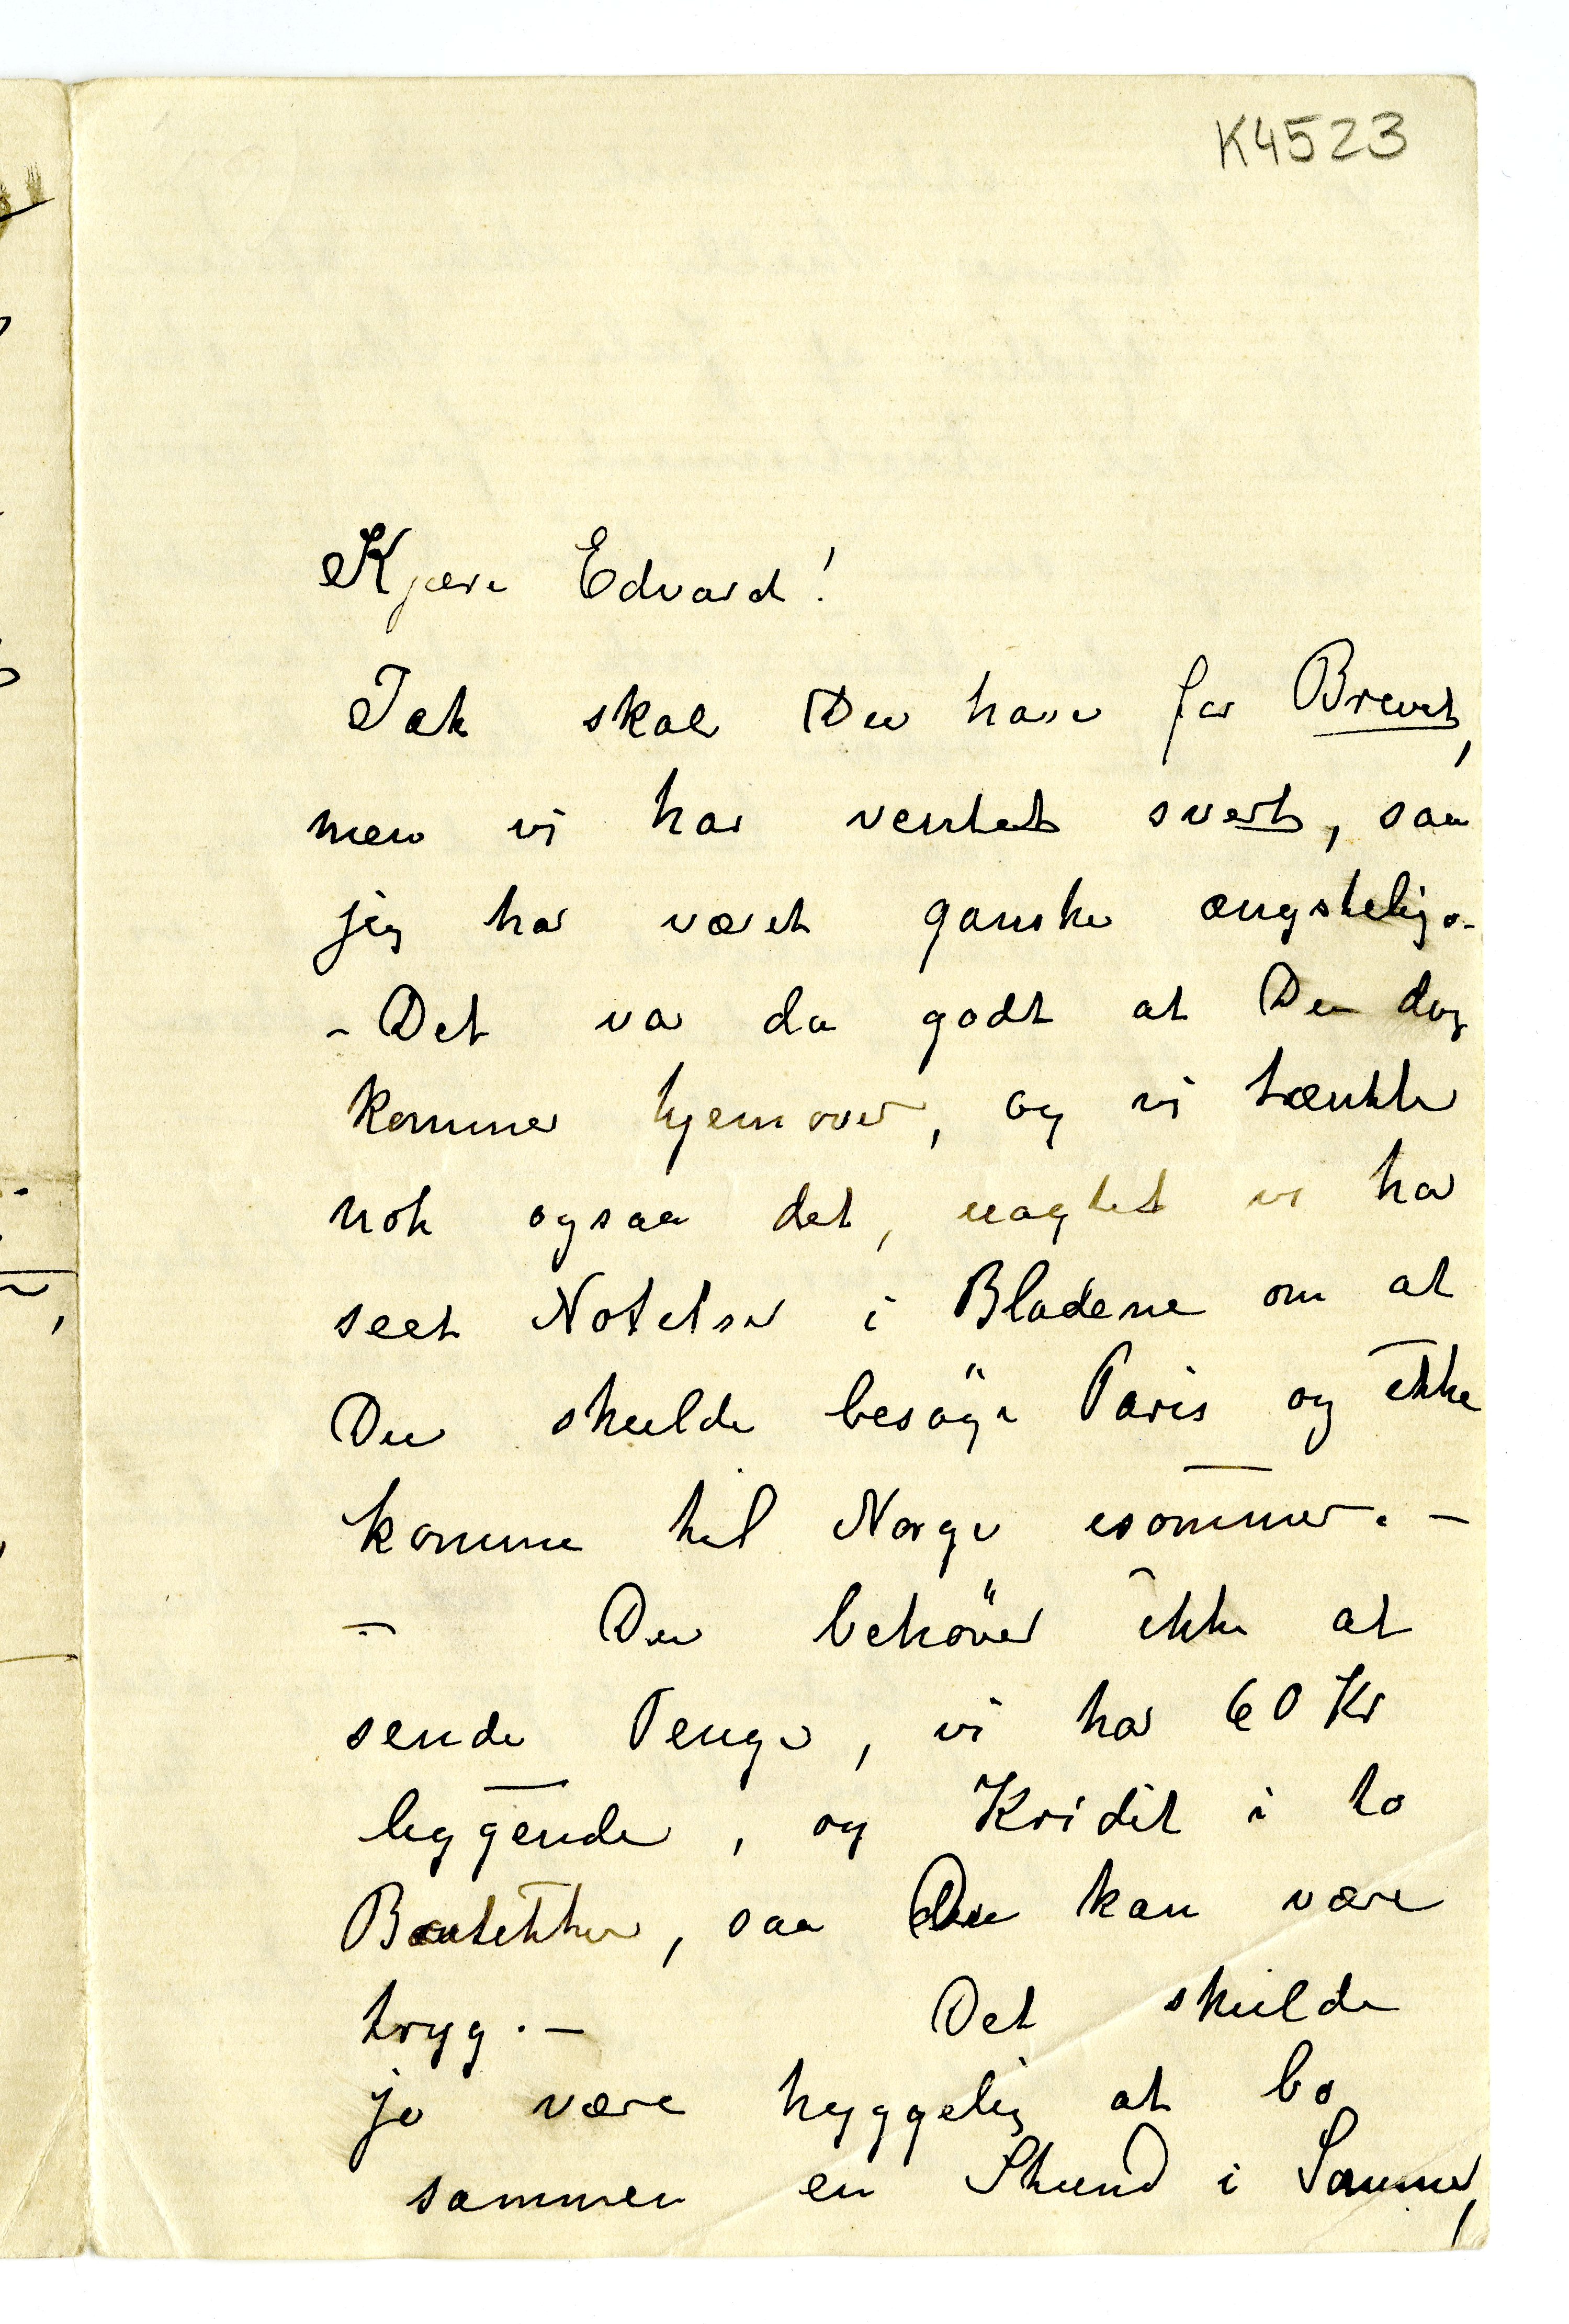 K4523
Kjære Edvard!
Tak skal Du have for Brevet,
men vi har ventet svert, saa
jeg har været ganske ængstelig.-
- Det var da godt at Du dog
kommer hjemover, og vi tænkte
nok ogsaa det, uagtet vi har
seet Notetser i Bladene om at
Du skulde besöge Paris og ikke
komme til Norge isommer. -
- Du behöver ikke at
sende Penge, vi har 60 Kr
liggende, og Kridit i to
Boutikker, saa Du kan være
tryg. - Det skulde
jo være hyggelig at bo
sammen en Stund i Sommer,